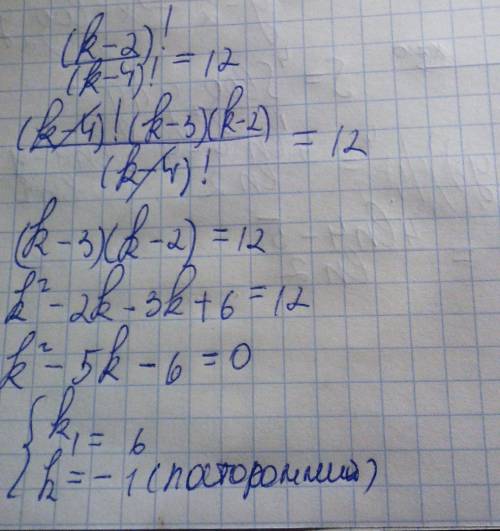 (k-2)!/(k-4)! = 12
(k-4)!(k-3)(k-2)/(k-4)! = 12
(k-3)(k-2) = 12
k² - 2k - 3k + 6 = 12
k² - 5k - 6 = 0
{ k₁ = 6
k = -1 (посторонний)